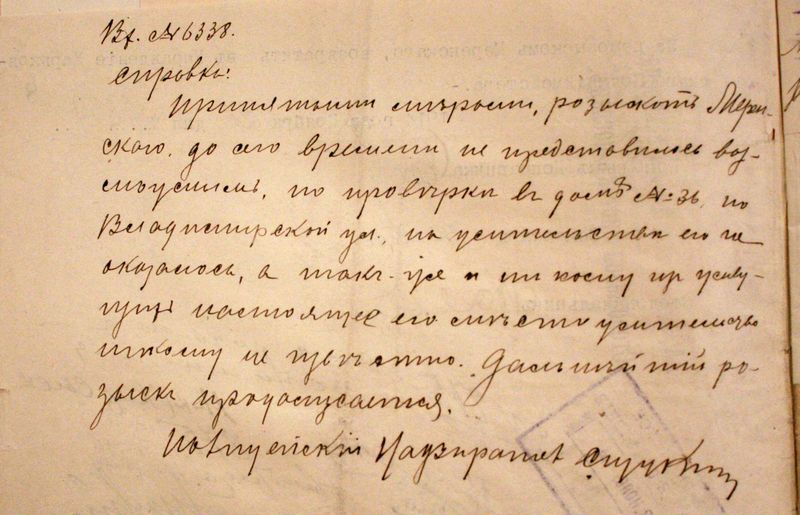 Вх. № 6338.
Справка:
Принятыми мерами, розыскать Мерин-
скаго, до сего времени не представилось воз-
можнымъ, по проверки въ доме № 36, по
Владимирской ул., на жительстве его не
оказалось, а такъ-же и ни кому
настоящее его место жительство
никому не известно. Дальнейший ро-
зыскъ продолжается.
Полицейский Надзиратель